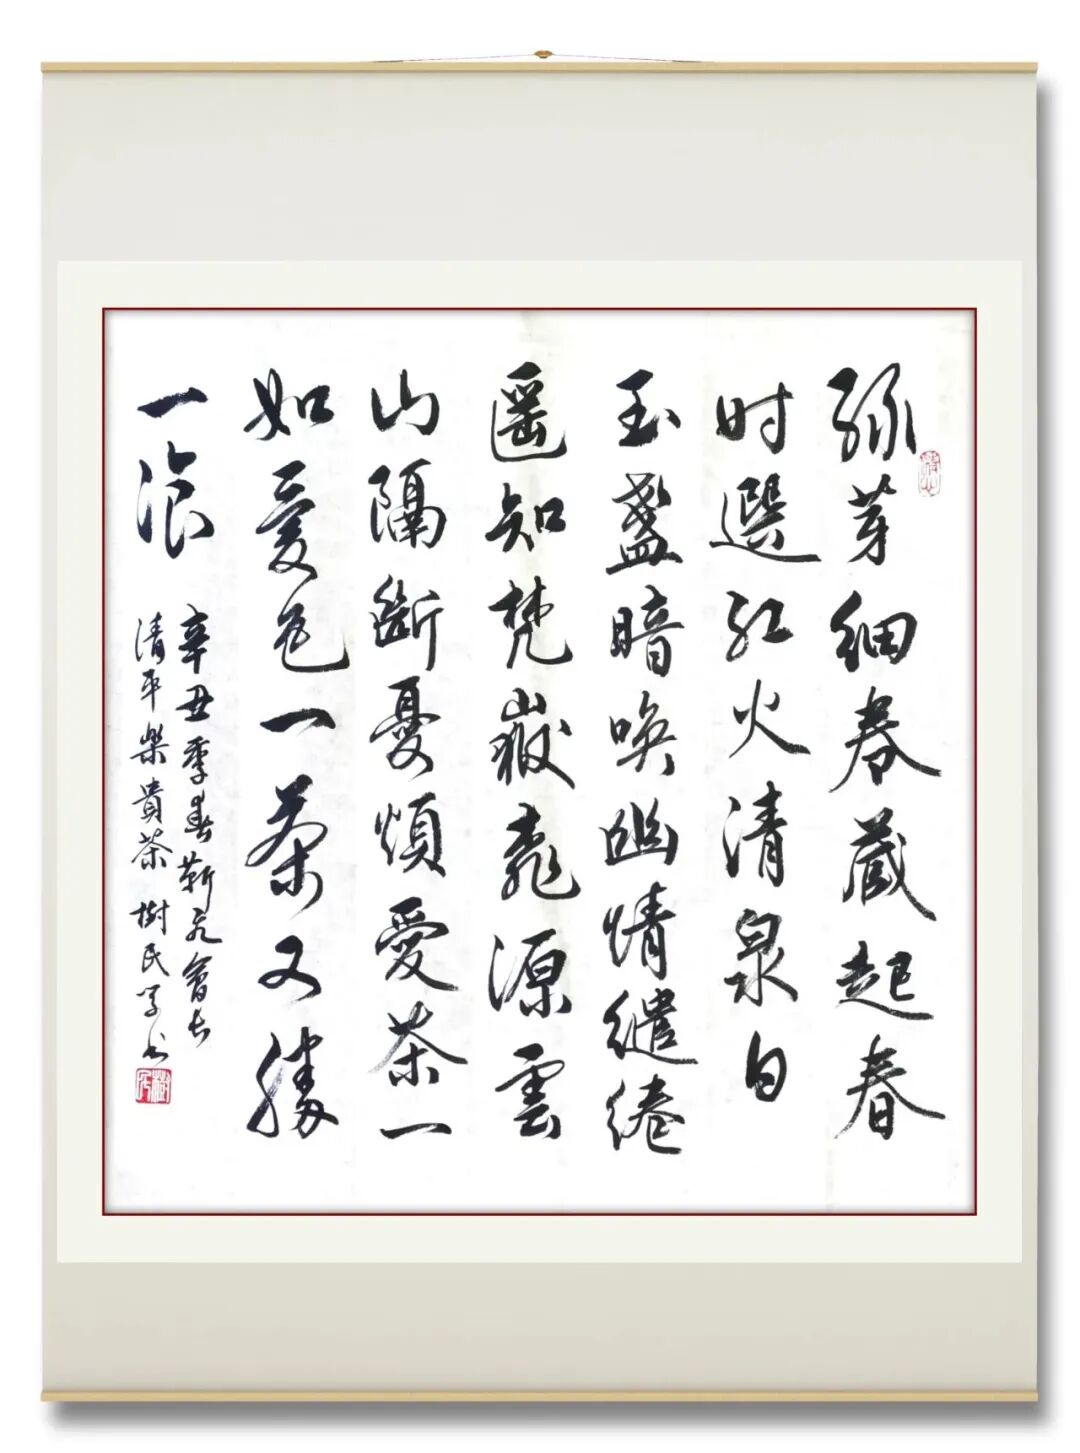 芽细卷藏起春
时選红火清泉白
玉盞暗唤幽情繾綣
遥知梵嶽飛源雲
山隔斷憂煩愛茶一
如爱色一茶又勝
一浪
辛丑季春靳元會长
清平樂貴茶 樹民学书